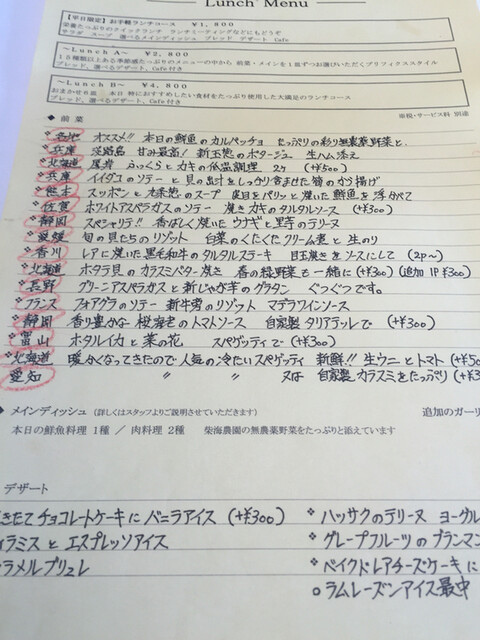 Lunch Menu
【平日限定】お手軽ランチコース ￥1,800
栄養たっぷりのクイックランチ ランチミーティングなどにもどうぞ
サラダ スープ 選べるメインディッシュ ブレッド デザート Cafe
～Lunch A～ ￥2,800
15種類以上ある季節感たっぷりのメニューの中から 前菜・メインを1皿ずつお選びいただくプリフィックススタイル
ブレッド、選べるデザート、Cafe付き
～Lunch B～ ￥4,800
おまかせ6皿 本日 特におすすめしたい食材をたっぷり使用した大満足のランチコース
ブレッド、選べるデザート、Cafe付き
◆ 前菜 席税・サービス料 別途
各地 オススメ!! 本日の鮮魚のカルパッチョ たっぷりの彩り無農薬野菜と.
兵庫 淡路島 甘み最高! 新玉葱のポタージュ 生ハム添え
北海道 厚岸 ふっくらとカキの低温調理 2ヶ (+¥500)
兵庫 イイダコのソテーと貝の出汁をしっかり含ませた筍のから揚げ
熊本 スッポンと九条葱のスープ 皮目をパリッと焼いた鮮魚を浮かべて
佐賀 ホワイトアスパラガスのソテー 焼きカキのタルタルソース (+¥300)
静岡 スペシャリテ!! 香ばしく焼いたウナギと里芋のテリーヌ
愛媛 旬の貝たちのリゾット 白菜のくたくたクリーム煮と生のり
香川 レアに焼いた黒毛和牛のタルタルステーキ 目玉焼きをソースにして (2p~)
北海道 ホタテ貝のカラスミバター焼き 春の桜野菜も一緒に (+¥300) (追加1P ¥300)
長野 グリーンアスパラガスと新じゃが芋のグラタン ぐつぐつです。
フランス フォアグラのソテー 新牛蒡のリゾット マデラワインソース
静岡 香り豊かな桜海老のトマトソース 自家製タリアテレで (+¥300)
富山 ホタルイカと菜の花 スペゲティで (+¥300)
北海道 暖かくなってきたので人気の冷たいスペゲッティ 新鮮!! 生ウニとトマト (+¥50
愛知 〃 〃 又は 自家製カラスミをたっぷり (+¥3
◆ メインディッシュ (詳しくはスタッフよりご説明させていただきます) 追加のガーリ
本日の鮮魚料理 1種 / 肉料理 2種 柴海農園の無農薬野菜をたっぷりと添えています
デザート
きたてチョコレートケーキにバニラアイス (+¥300)
ハッサクのテリーヌ ヨーグル
ィラミスとエスプレッソアイス
グレープフルーツのブランマン
ラメルブリュレ
ベイクドレアチーズケーキに
ラムレーズンアイス最中